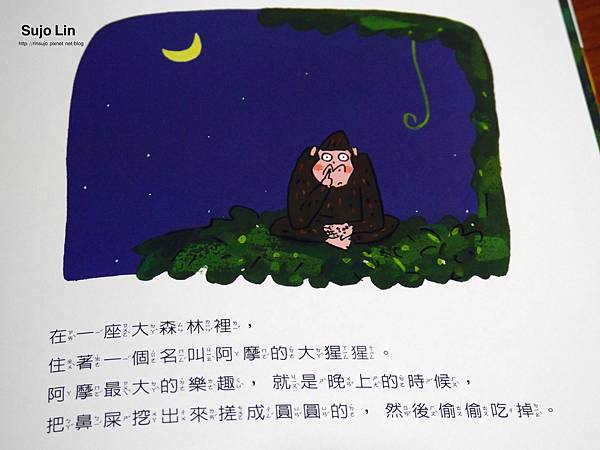 Sujo Lin
http://rinsujo.pixnet.net/blog
在一座大森林裡，
住著一個名叫阿摩的大猩猩。
阿摩最大的樂趣，就是晚上的時候，
把鼻屎挖出來搓成圓圓的，然後偷偷吃掉。